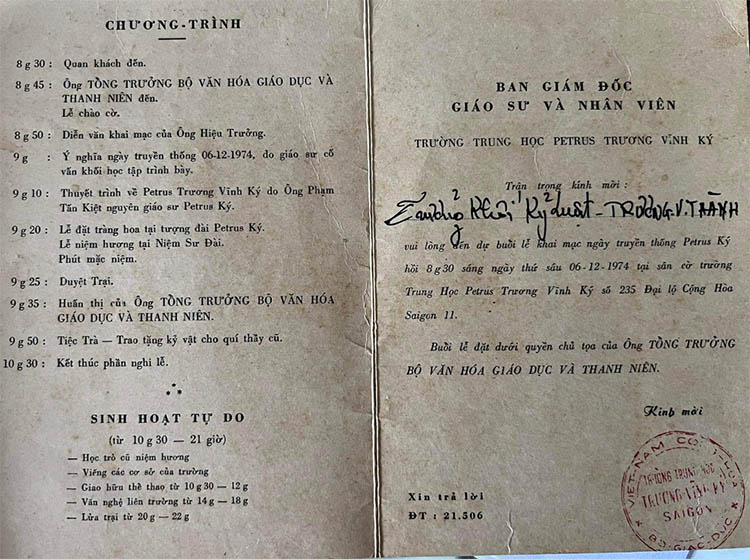 CHƯƠNG-TRÌNH
8 g 30 : Quan khách đến.
8 g 45 : Ông TỔNG TRƯỞNG BỘ VĂN HÓA GIÁO DỤC VÀ
THANH NIÊN đến.
Lễ chào cờ.
8 g 50 : Diễn văn khai mạc của Ông Hiệu Trưởng.
9 g : Ý nghĩa ngày truyền thống 06-12-1974, do giáo sư cố
vấn khối học tập trình bày.
9 g 10 : Thuyết trình về Petrus Trương Vĩnh Ký do Ông Phạm
Tấn Kiệt nguyên giáo sư Petrus Ký.
9 g 20 : Lễ đặt tràng hoa tại tượng đài Petrus Ký.
Lễ niệm hương tại Niệm Sư Đài.
Phút mặc niệm.
9 g 25 : Duyệt Trại.
9 g 35 : Huấn thị của Ông TỔNG TRƯỞNG BỘ VĂN HÓA
GIÁO DỤC VÀ THANH NIÊN.
9 g 50 : Tiệc Trà — Trao tặng kỷ vật cho quí thầy cũ.
10 g 30 : Kết thúc phần nghi lễ.
SINH HOẠT TỰ DO
(từ 10 g 30 — 21 giờ)
— Học trò cũ niệm hương
— Viếng các cơ sở của trường
— Giao hữu thể thao từ 10 g 30 — 12 g
— Văn nghệ liên trường từ 14 g — 18 g
— Lửa trại từ 20 g — 22 g
BAN GIÁM ĐỐC
GIÁO SƯ VÀ NHÂN VIÊN
TRƯỜNG TRUNG HỌC PETRUS TRƯƠNG VĨNH KÝ
Trân trọng kính mời :
Khối Kỷ luật - TRƯƠNG.V.THÀNH
vui lòng đến dự buổi lễ khai mạc ngày truyền thống Petrus Ký
hồi 8 g 30 sáng ngày thứ sáu 06-12-1974 tại sân cờ trường
Trung Học Petrus Trương Vĩnh Ký số 235 Đại lộ Cộng Hòa
Saigon 11.
Buổi lễ đặt dưới quyền chủ tọa của Ông TỔNG TRƯỞNG
BỘ VĂN HÓA GIÁO DỤC VÀ THANH NIÊN.
Kính mời
Xin trả lời
ĐT : 21.506
VIỆT-NAM CỘNG-HÒA
TRƯỜNG TRUNG HỌC
TRƯƠNG-VĨNH-KÝ
SAIGON
BỘ GIÁO-DỤC